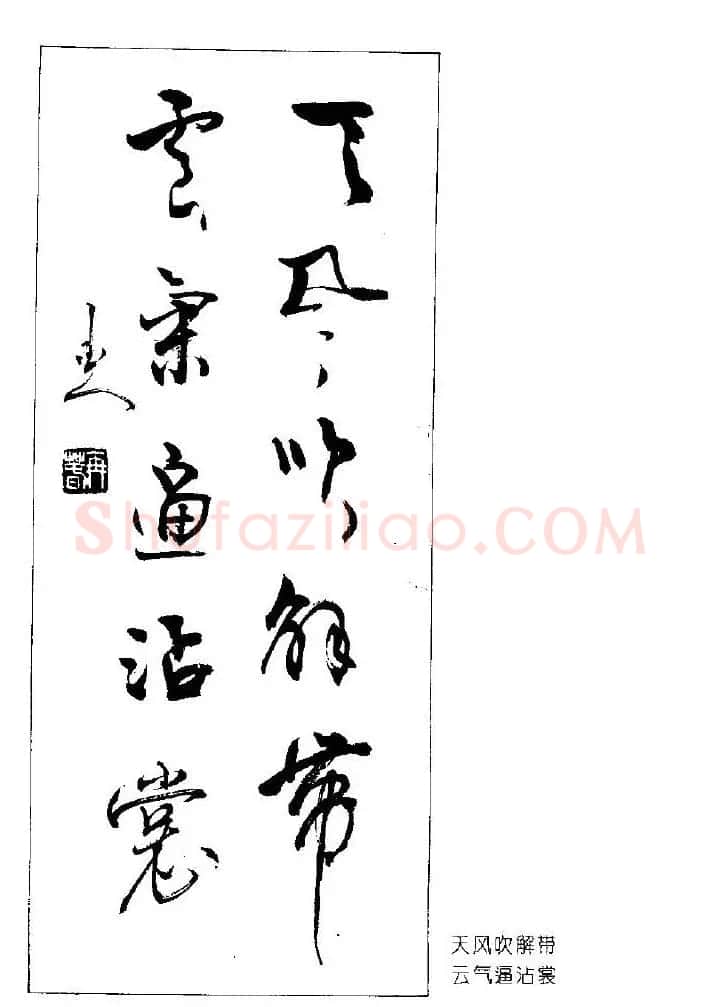 天风吹解带
雲氣逼沾裳
Shufaziliao.COM
天风吹解带
云气逼沾裳